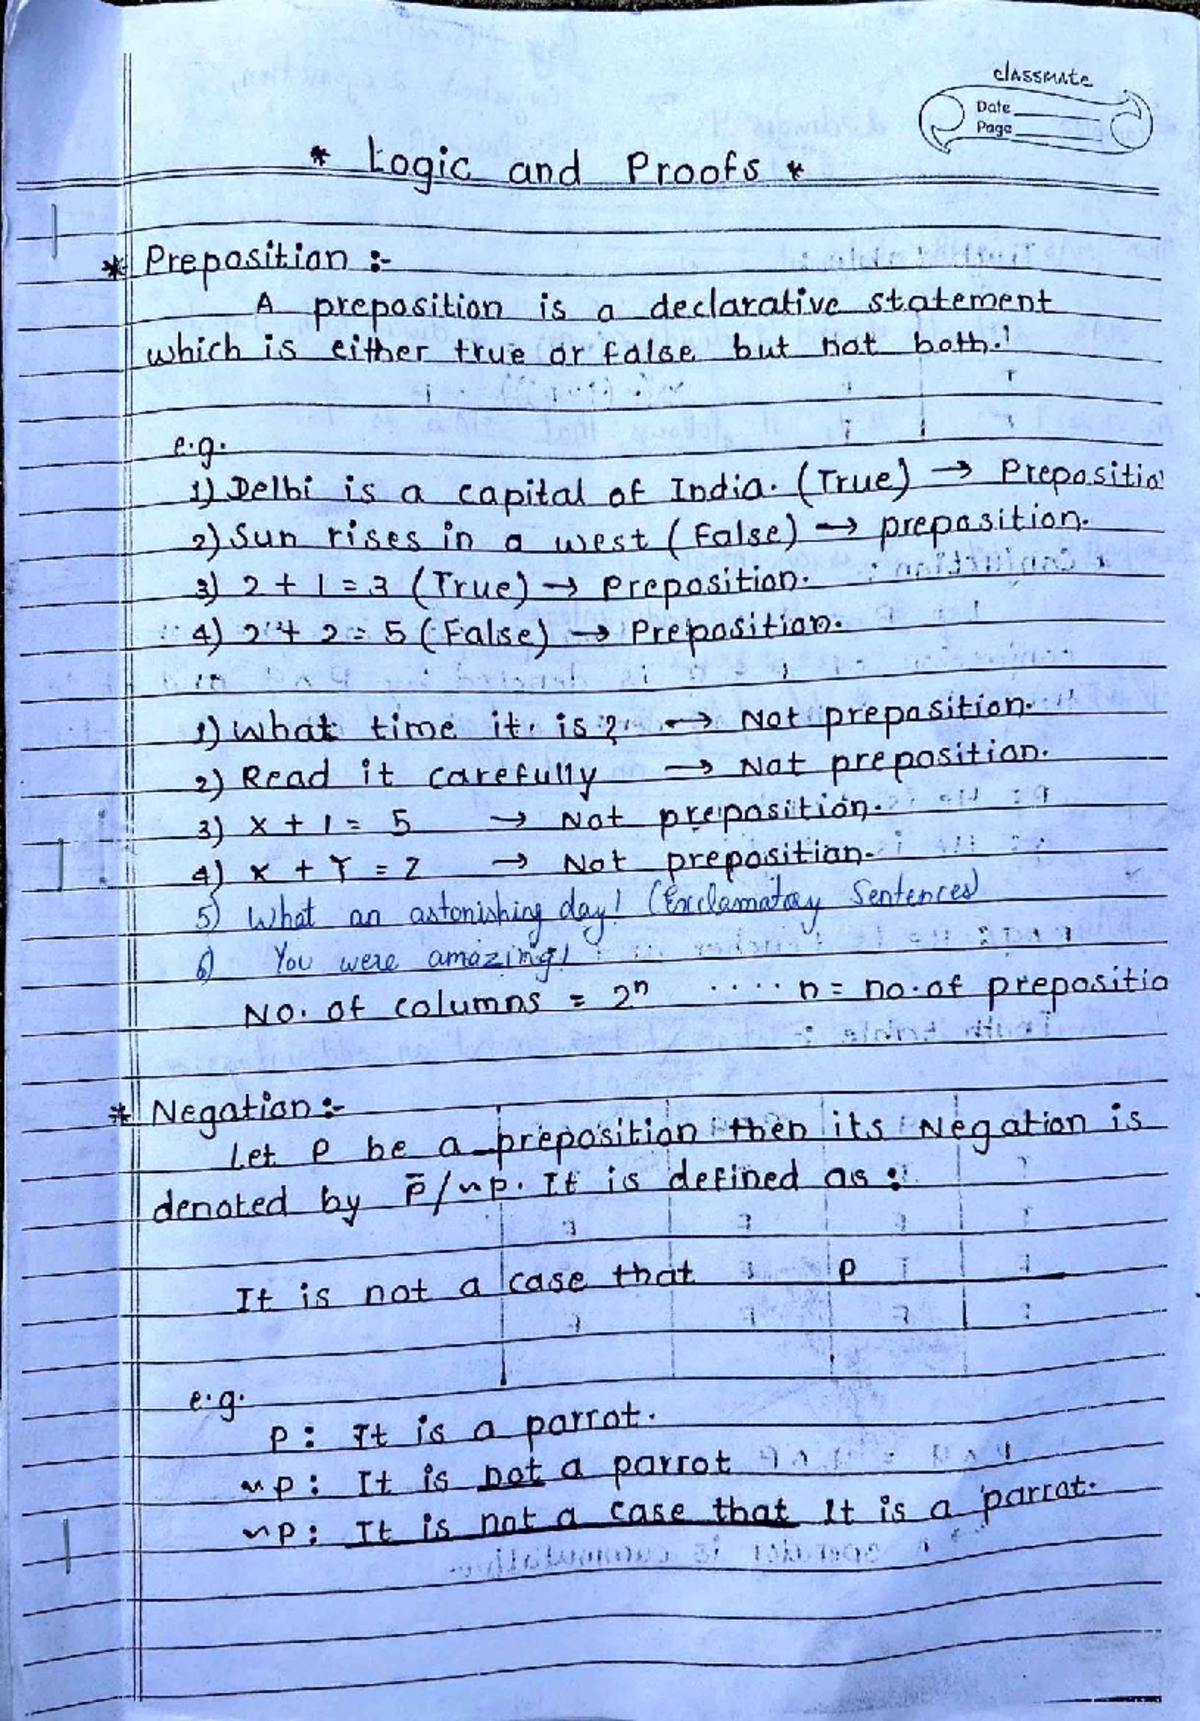 classmate
Date
Page
* Logic and Proofs *
* Preposition :-
A preposition is a declarative statement
which is either true or false but not both.
e.g.
1) Delhi is a capital of India. (True) → Prepositio
2) Sun rises in a west (False) → preposition.
3) 2 + 1 = 3 (True) → preposition.
4) 2 + 2 = 5 (False) → Preposition.
1) What time it is ? → Not preposition.
2) Read it carefully → Not preposition.
3) x + 1 = 5 → Not preposition.
4) x + Y = Z → Not preposition.
5) What an astonishing day! (Exclamatory Sentences)
6) You were amazing!
No. of columns = 2ⁿ .... n = no. of prepositio
* Negation :-
Let P be a preposition then its Negation is
denoted by p̅ / ~p. It is defined as :
It is not a case that P
e.g.
P : It is a parrot.
~p : It is not a parrot
~p : It is not a case that It is a parrot.